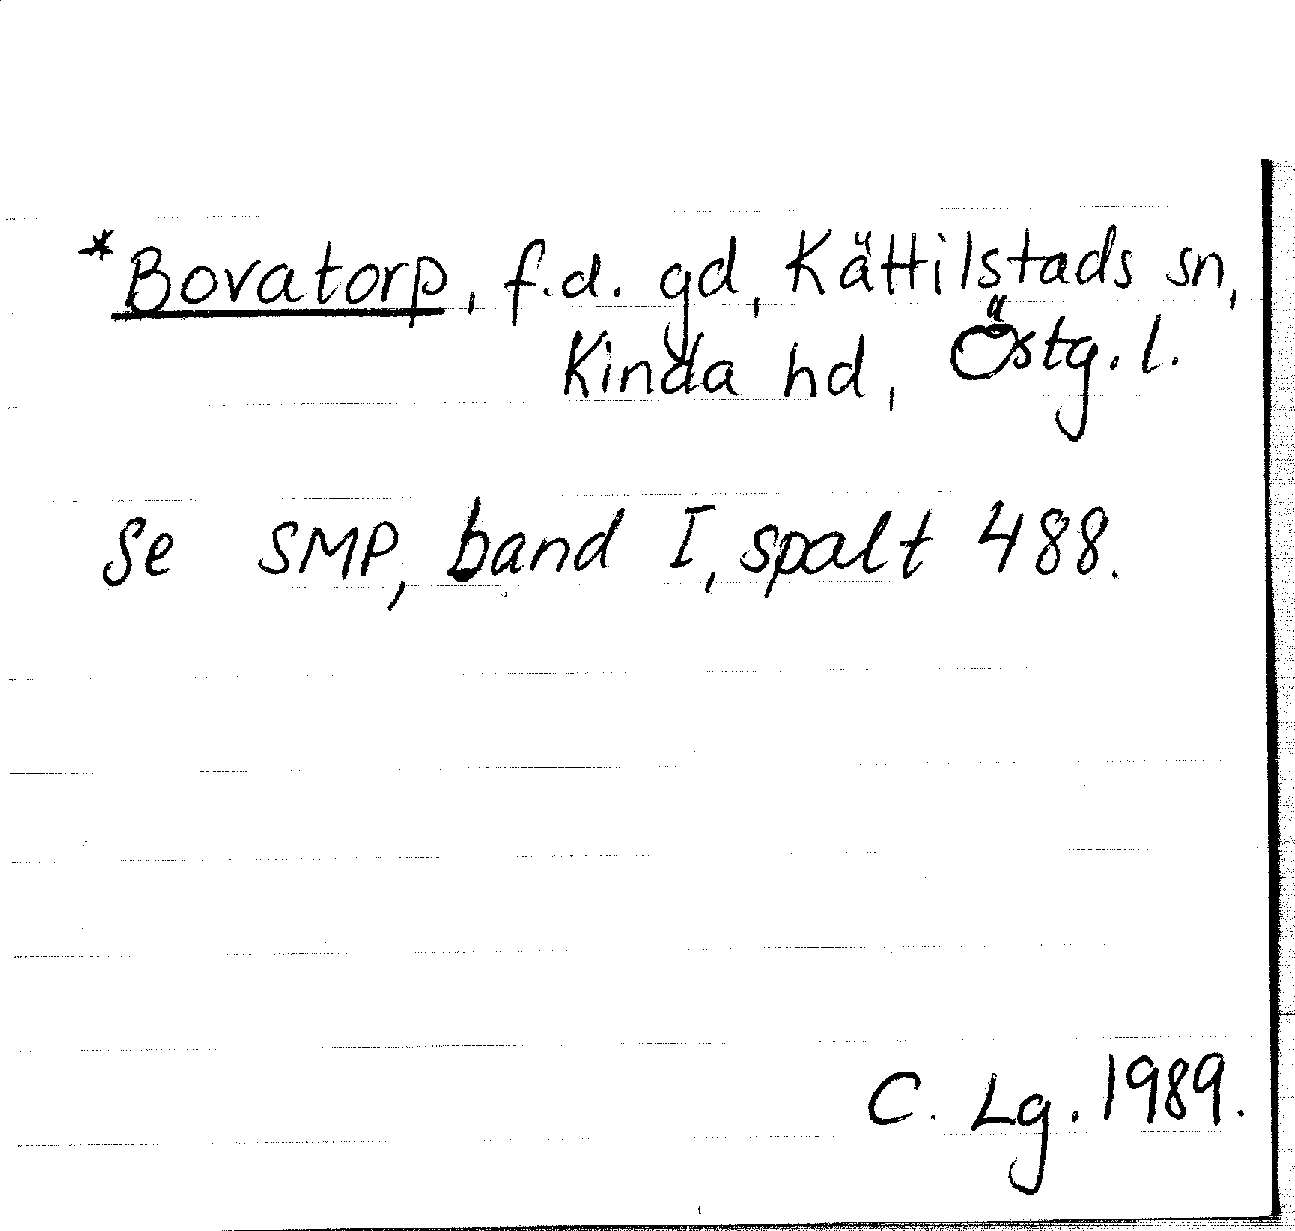 *Bovatorp, f.d. gd, Kättilstads sn,
Kinda hd, Östg. l.
Se SMP, band I, spalt 488.
C. Lg. 1989.